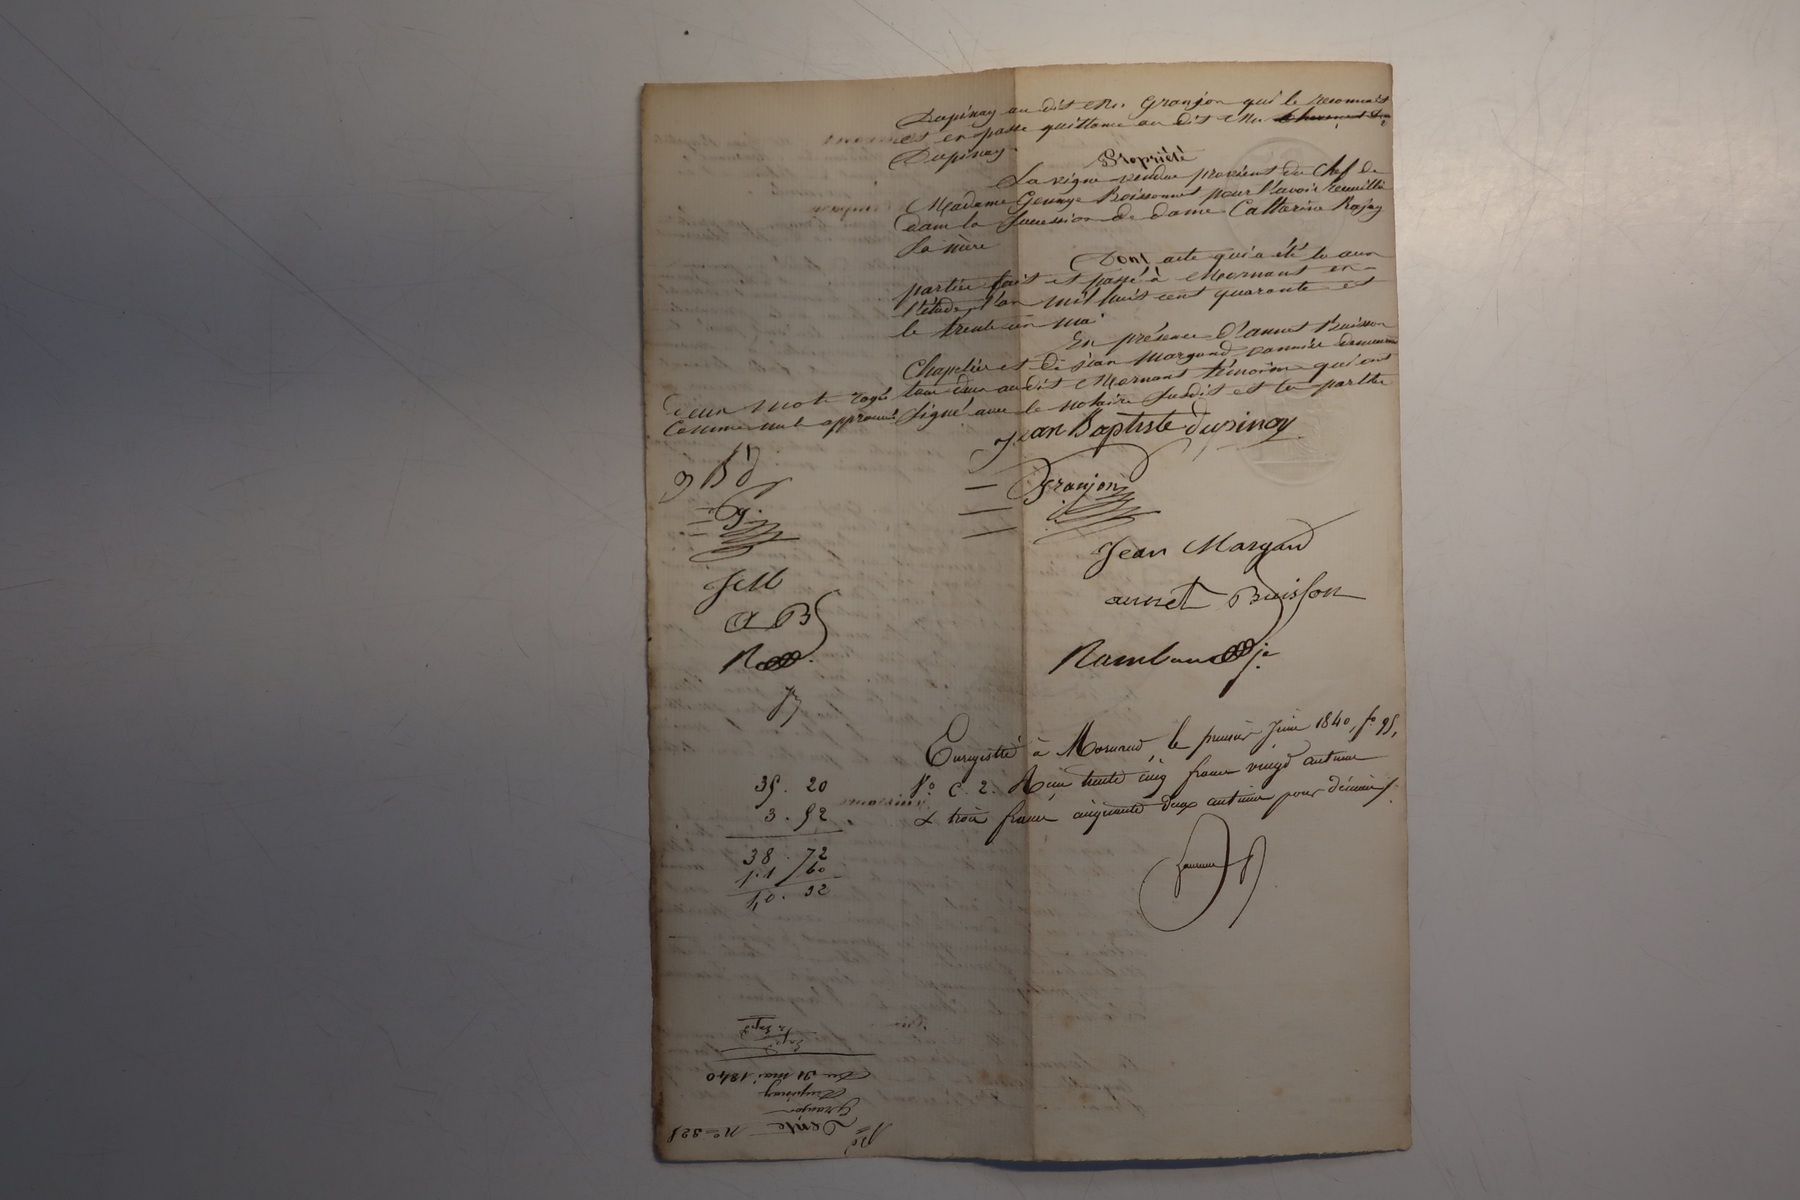 Dupinay au dit Mr. Granjon qui le reconnait
et en passe quittance au dit Mr
Dupinay.
Propriété
La vigne vendue provient du chef de
Madame Granje Boissonnet pour l'avoir recueillie
dans la succession de dame Catherine Rajay
sa mère
Dont acte qui a été lu aux
parties fait et passé à Mornant en
l'étude, l'an mil huit cent quarante et
le trente un mai
En présence d'annet Buisson
Chapelier et de jean Margand vannier demeurant
tous deux au dit Mornant témoins qui ont
signé avec le notaire susdit et les parties
deux mots rayés
comme nuls approuvé
Jean Baptiste dupinay
J B d
Granjon
G.
Jean Margand
J M
annet Buisson
A B
Rambaud je
R
Enregistré à Mornand, le premier Juin 1840, fo 95,
Vo C. 2. Reçu trente cinq francs vingt centimes
& trois francs cinquante deux centimes pour décime
35. 20
3. 52
38. 72
1.1 60
40. 32
No 321
Vente
Granjon
Dupinay
Du 31 mai 1840
Expd